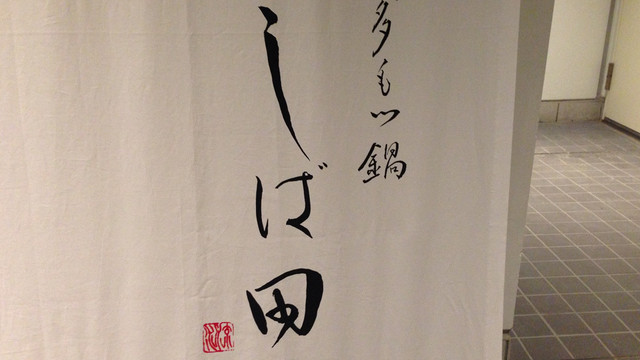 多もつ鍋
しば田